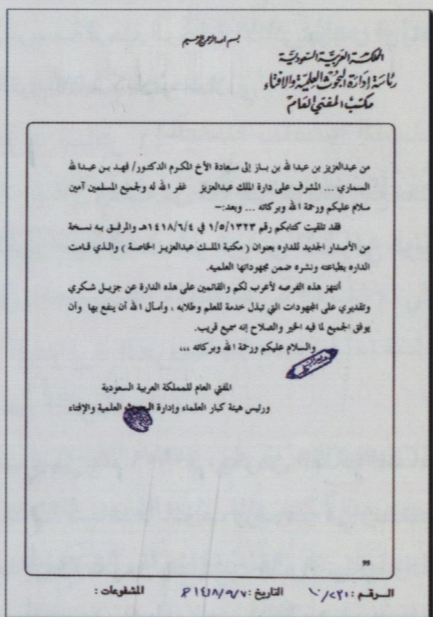 بسم الله الرحمن الرحيم
المملكة العربية السعودية
رئاسة إدارة البحوث العلمية والافتاء
مكتب المفتي العام
من عبدالعزيز بن عبدالله بن باز إلى سعادة الأخ المكرم الدكتور/ فهد بن عبدالله
السماري ... المشرف على دارة الملك عبدالعزيز غفر الله له ولجميع المسلمين آمين
سلام عليكم ورحمة الله وبركاته ... وبعد:-
فقد تلقيت كتابكم رقم ١/٥/١٣٢٣ في ١٤١٨/٦/٤هـ والمرفق به نسخة
من الأصدار الجديد للداره بعنوان ( مكتبة الملك عبدالعزيز الخاصة ) والذي قامت
الداره بطباعته ونشره ضمن مجهوداتها العلميه.
أنتهز هذه الفرصه لأعرب لكم والقائمين على هذه الدارة عن جزيل شكري
وتقديري على المجهودات التي تبذل خدمة للعلم وطلابه ، وأسأل الله أن ينفع بها وأن
يوفق الجميع لما فيه الخير والصلاح إنه سميع قريب.
والسلام عليكم ورحمة الله وبركاته ...
المفتي العام للمملكة العربية السعودية
ورئيس هيئة كبار العلماء وإدارة البحوث العلمية والإفتاء
الرقم : التاريخ : ١٤١٨/٩/٧ المشفوعات :